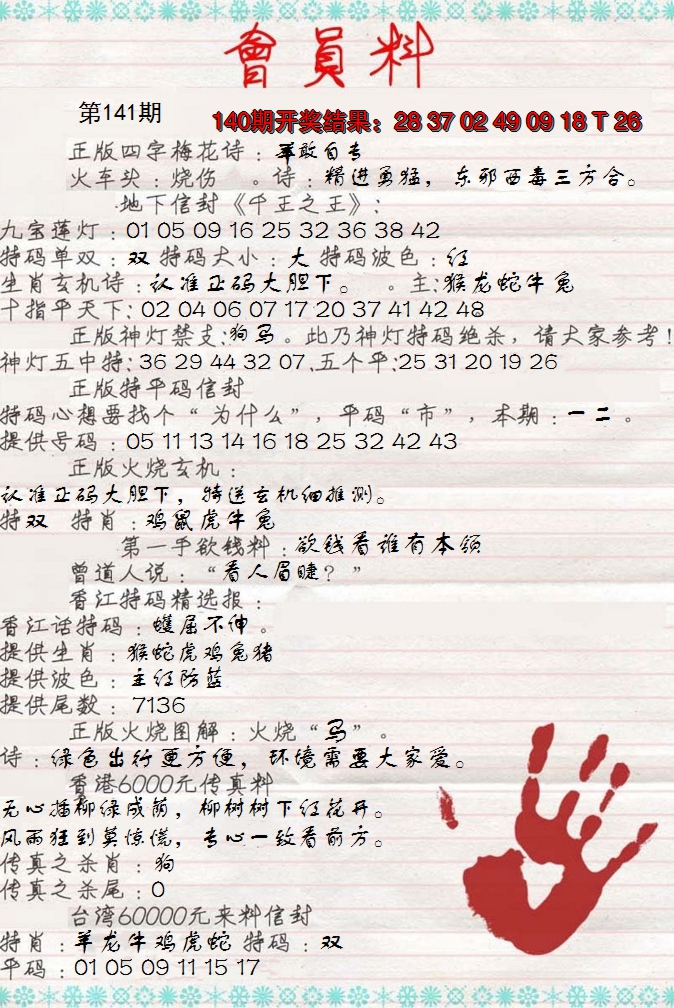 會員料
第141期
140期开奖结果：28 37 02 49 09 18 T 26
正版四字梅花诗：革敢自专
火车头：烧伤 。诗：精进勇猛，东邪西毒三方合。
地下信封《千王之王》：
九宝莲灯：01 05 09 16 25 32 36 38 42
特码单双：双 特码大小：大 特码波色：红
生肖玄机诗：认准正码大胆下。 。主:猴龙蛇牛兔
十指平天下: 02 04 06 07 17 20 37 41 42 48
正版神灯禁支:狗马。此乃神灯特码绝杀，请大家参考!
神灯五中特: 36 29 44 32 07.五个平:25 31 20 19 26
正版特平码信封
特码心想要找个“为什么”，平码“市”，本期：一二。
提供号码：05 11 13 14 16 18 25 32 42 43
正版火烧玄机：
认准正码大胆下，特送玄机细推测。
特双 特肖：鸡鼠虎牛兔
第一手欲钱料：欲钱看谁有本领
曾道人说：“看人眉睫？”
香江特码精选报：
香江话特码：蠖屈不伸。
提供生肖：猴蛇虎鸡兔猪
提供波色：主红防蓝
提供尾数：7136
正版火烧图解：火烧“马”。
诗：绿色出行更方便，环境需要大家爱。
香港6000元传真料
无心插柳绿成荫，柳树树下红花开。
风雨狂到莫惊慌，专心一致看前方。
传真之杀肖：狗
传真之杀尾：0
台湾60000元来料信封
特肖：羊龙牛鸡虎蛇 特码：双
平码：01 05 09 11 15 17